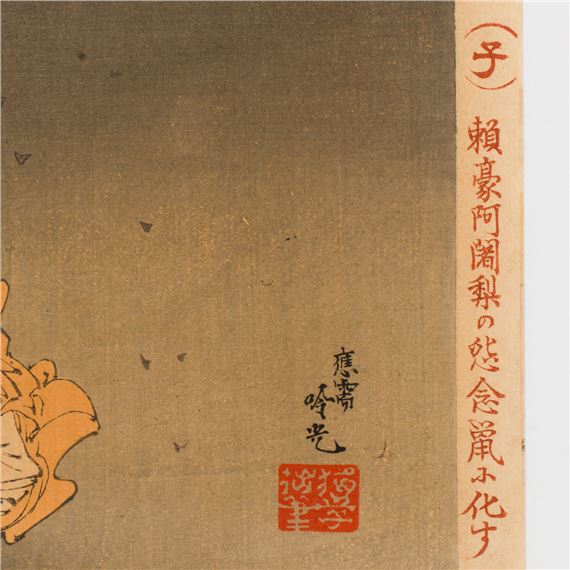 (子) 頼豪阿闍梨の怨念鼠に化す
應需
吟光